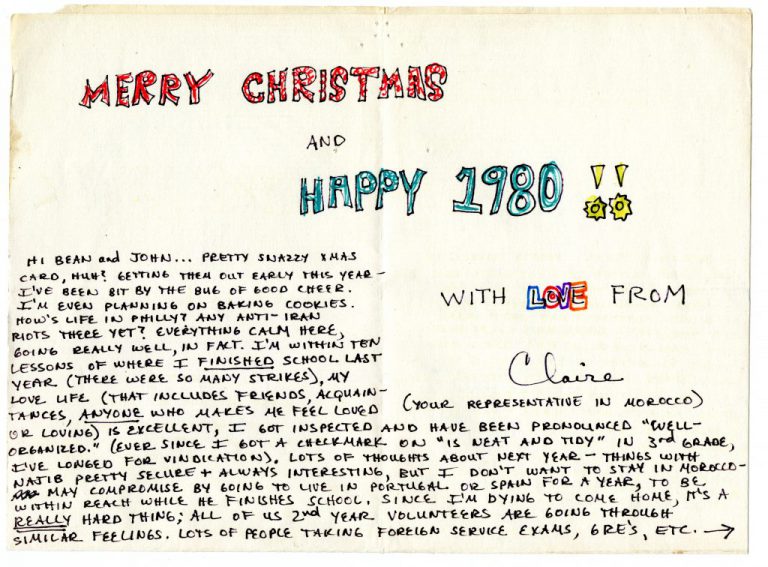 MERRY CHRISTMAS
AND
HAPPY 1980 !!
HI BEAN and JOHN... PRETTY SNAZZY XMAS
CARD, HUH? GETTING THEM OUT EARLY THIS YEAR -
I'VE BEEN BIT BY THE BUG OF GOOD CHEER.
I'M EVEN PLANNING ON BAKING COOKIES.
HOW'S LIFE IN PHILLY? ANY ANTI-IRAN
RIOTS THERE YET? EVERYTHING CALM HERE,
GOING REALLY WELL, IN FACT. I'M WITHIN TEN
LESSONS OF WHERE I FINISHED SCHOOL LAST
YEAR (THERE WERE SO MANY STRIKES), MY
LOVE LIFE (THAT INCLUDES FRIENDS, ACQUAIN-
TANCES, ANYONE WHO MAKES ME FEEL LOVED
OR LOVING) IS EXCELLENT, I GOT INSPECTED AND HAVE BEEN PRONOUNCED "WELL-
ORGANIZED." (EVER SINCE I GOT A CHECKMARK ON "IS NEAT AND TIDY" IN 3rd GRADE,
I'VE LONGED FOR VINDICATION). LOTS OF THOUGHTS ABOUT NEXT YEAR - THINGS WITH
NAJIB PRETTY SECURE + ALWAYS INTERESTING, BUT I DON'T WANT TO STAY IN MOROCCO-
MAY COMPROMISE BY GOING TO LIVE IN PORTUGAL OR SPAIN FOR A YEAR, TO BE
WITHIN REACH WHILE HE FINISHES SCHOOL. SINCE I'M DYING TO COME HOME, IT'S A
REALLY HARD THING; ALL OF US 2nd YEAR VOLUNTEERS ARE GOING THROUGH
SIMILAR FEELINGS. LOTS OF PEOPLE TAKING FOREIGN SERVICE EXAMS, GRE'S, ETC. →
WITH LOVE FROM
Claire
(YOUR REPRESENTATIVE IN MOROCCO)